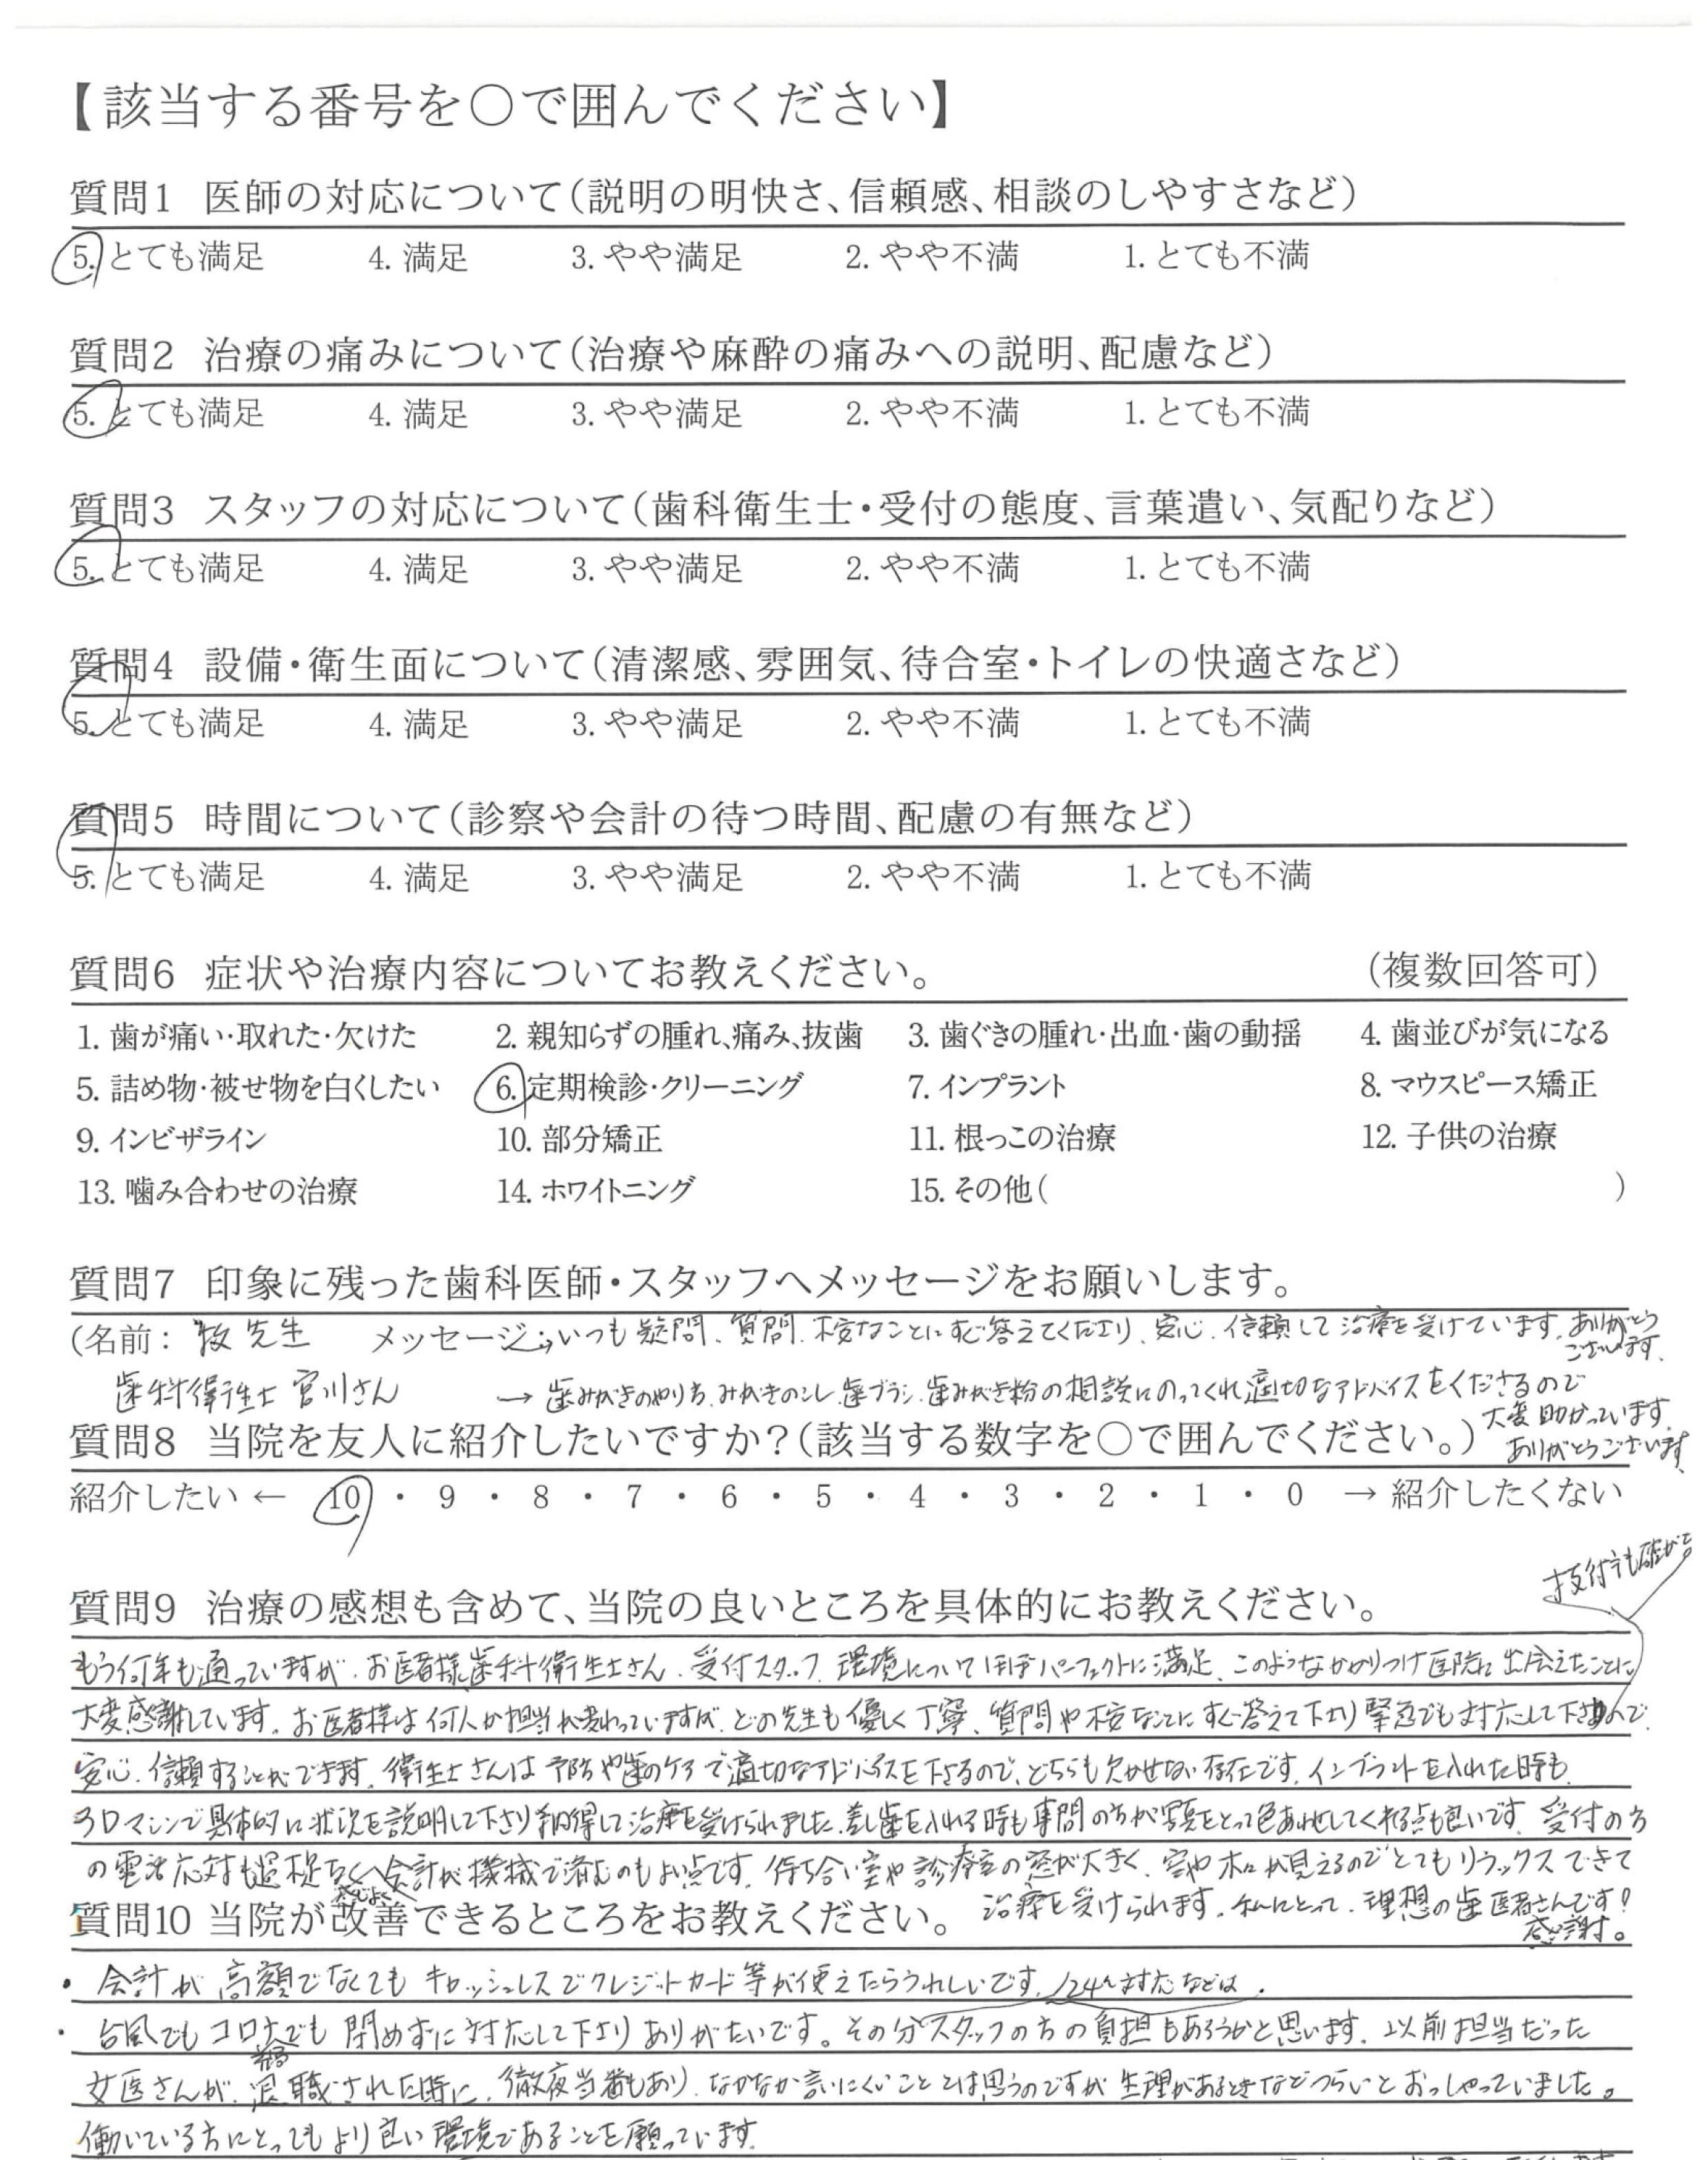 【該当する番号を○で囲んでください】
質問1 医師の対応について(説明の明快さ、信頼感、相談のしやすさなど)
5. とても満足 4. 満足 3. やや満足 2. やや不満 1. とても不満
質問2 治療の痛みについて(治療や麻酔の痛みへの説明、配慮など)
5. とても満足 4. 満足 3. やや満足 2. やや不満 1. とても不満
質問3 スタッフの対応について(歯科衛生士・受付の態度、言葉遣い、気配りなど)
5. とても満足 4. 満足 3. やや満足 2. やや不満 1. とても不満
質問4 設備・衛生面について(清潔感、雰囲気、待合室・トイレの快適さなど)
5. とても満足 4. 満足 3. やや満足 2. やや不満 1. とても不満
質問5 時間について(診察や会計の待つ時間、配慮の有無など)
5. とても満足 4. 満足 3. やや満足 2. やや不満 1. とても不満
質問6 症状や治療内容についてお教えください。 (複数回答可)
1. 歯が痛い・取れた・欠けた 2. 親知らずの腫れ、痛み、抜歯 3. 歯ぐきの腫れ・出血・歯の動揺 4. 歯並びが気になる
5. 詰め物・被せ物を白くしたい 6. 定期検診・クリーニング 7. インプラント 8. マウスピース矯正
9. インビザライン 10. 部分矯正 11. 根っこの治療 12. 子供の治療
13. 噛み合わせの治療 14. ホワイトニング 15. その他( )
質問7 印象に残った歯科医師・スタッフへメッセージをお願いします。
(名前: 牧先生 メッセージ: いつも疑問、質問、不安なことにすぐ答えてくださり、安心、信頼して治療を受けています。ありがとう
ございます。
歯科衛生士 宮川さん → 歯みがきのやり方、みがきのこし、歯ブラシ、歯みがき粉の相談にのってくれ適切なアドバイスをくださるので
大変助かっています。
ありがとうございます。
質問8 当院を友人に紹介したいですか?(該当する数字を○で囲んでください。)
紹介したい ← 10 ・ 9 ・ 8 ・ 7 ・ 6 ・ 5 ・ 4 ・ 3 ・ 2 ・ 1 ・ 0 → 紹介したくない
技術も確かで
質問9 治療の感想も含めて、当院の良いところを具体的にお教えください。
もう何年も通っていますが、お医者様、歯科衛生士さん、受付スタッフ、環境についてほぼパーフェクトに満足、このようなかかりつけ医院に出会えたことに
大変感謝しています。お医者様は何人か担当が変わっていますが、どの先生も優しく丁寧、質問や不安なことにすぐ答えて下さり緊急でも対応して下さるので
安心、信頼することができます。衛生士さんは予防や歯のケアで適切なアドバイスを下さるので、どちらも欠かせない存在です。インプラントを入れた時も、
3Dマシンで具体的に状況を説明して下さり納得して治療を受けられました。差し歯を入れる時も専門の方が写真をとって色あわせしてくれる点も良いです。受付の方
の電話応対も過不足なく感じよく会計が機械で済むのもよい点です。待ち合い室や診療室の窓が大きく、空や木々が見えるのでとてもリラックスできて
治療を受けられます。私にとって、理想の歯医者さんです!
感謝。
質問10 当院が改善できるところをお教えください。
・会計が高額でなくてもキャッシュレスでクレジットカード等が使えたらうれしいです。/24h対応などは、
・台風でもコロナでも閉めずに対応して下さりありがたいです。その分スタッフの方の負担もあろうかと思います。以前担当だった
女医さんが、退職される時に、徹夜当番もあり、なかなか言いにくいこととは思うのですが生理があるときなどつらいとおっしゃっていました。
働いている方にとってもより良い環境であることを願っています。